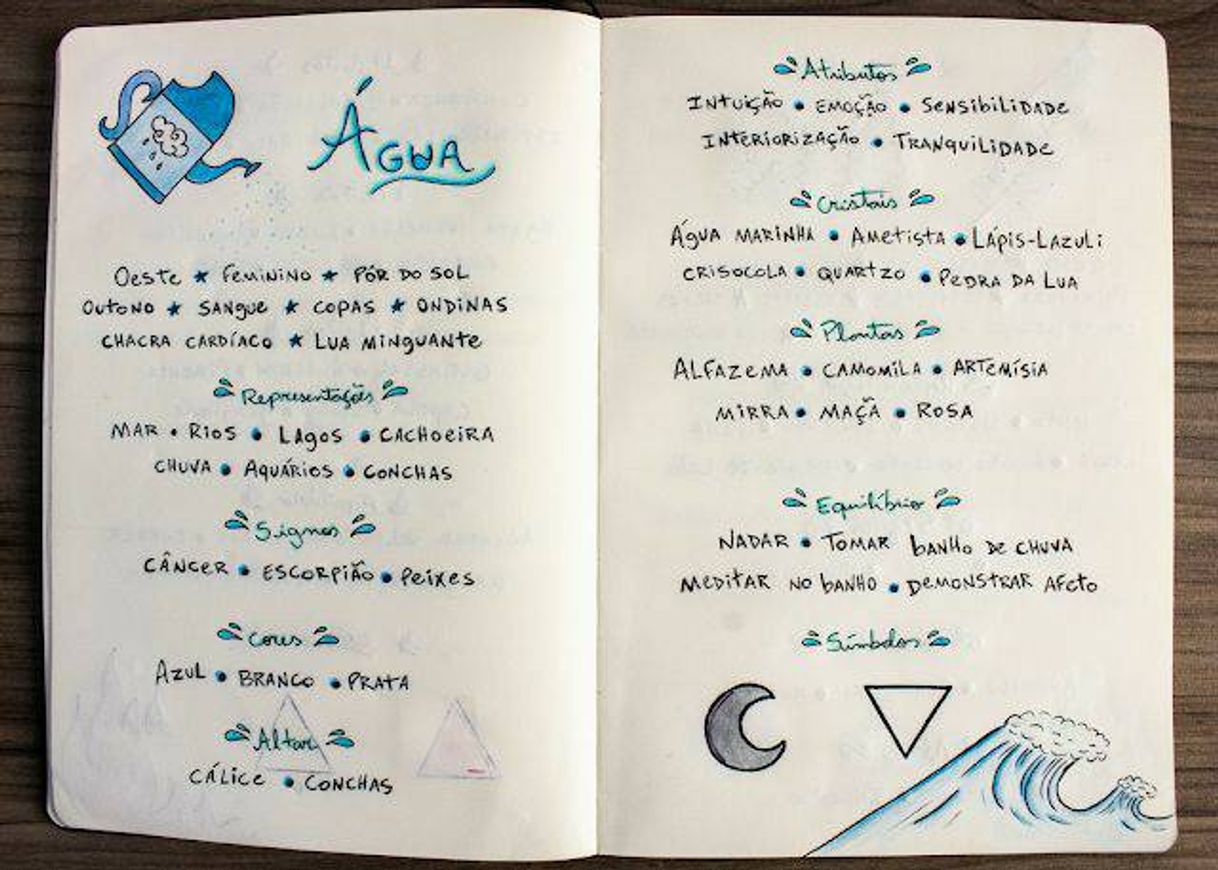 Água
Oeste ★ Feminino ★ Pôr do Sol
Outono ★ Sangue ★ Copas ★ Ondinas
Chacra Cardíaco ★ Lua Minguante
Representações
Mar • Rios • Lagos • Cachoeira
Chuva • Aquários • Conchas
Signos
Câncer • Escorpião • Peixes
Cores
Azul • Branco • Prata
Altar
Cálice • Conchas
Atributos
Intuição • Emoção • Sensibilidade
Interiorização • Tranquilidade
Cristais
Água Marinha • Ametista • Lápis-Lazuli
Crisocola • Quartzo • Pedra da Lua
Plantas
Alfazema • Camomila • Artemísia
Mirra • Maçã • Rosa
Equilíbrio
Nadar • Tomar banho de chuva
Meditar no banho • Demonstrar afeto
Símbolos